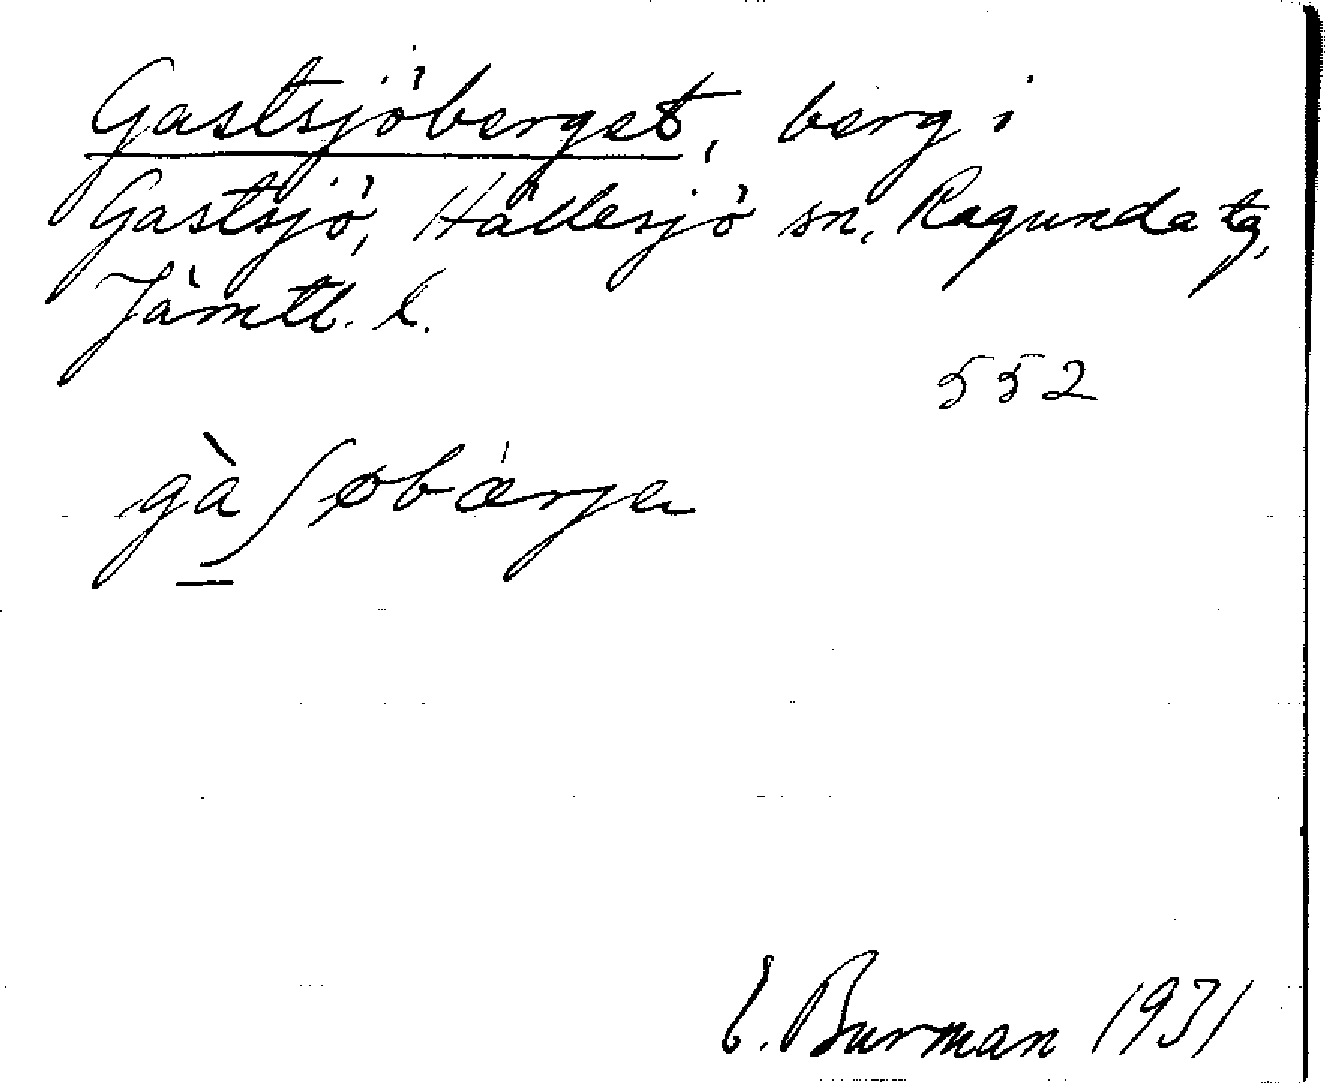 Gastsjöberget, berg i
Gastsjö, Hällesjö sn, Ragunda tg,
Jämtl. l.
552
gàʃøbærje
E. Burman 1931